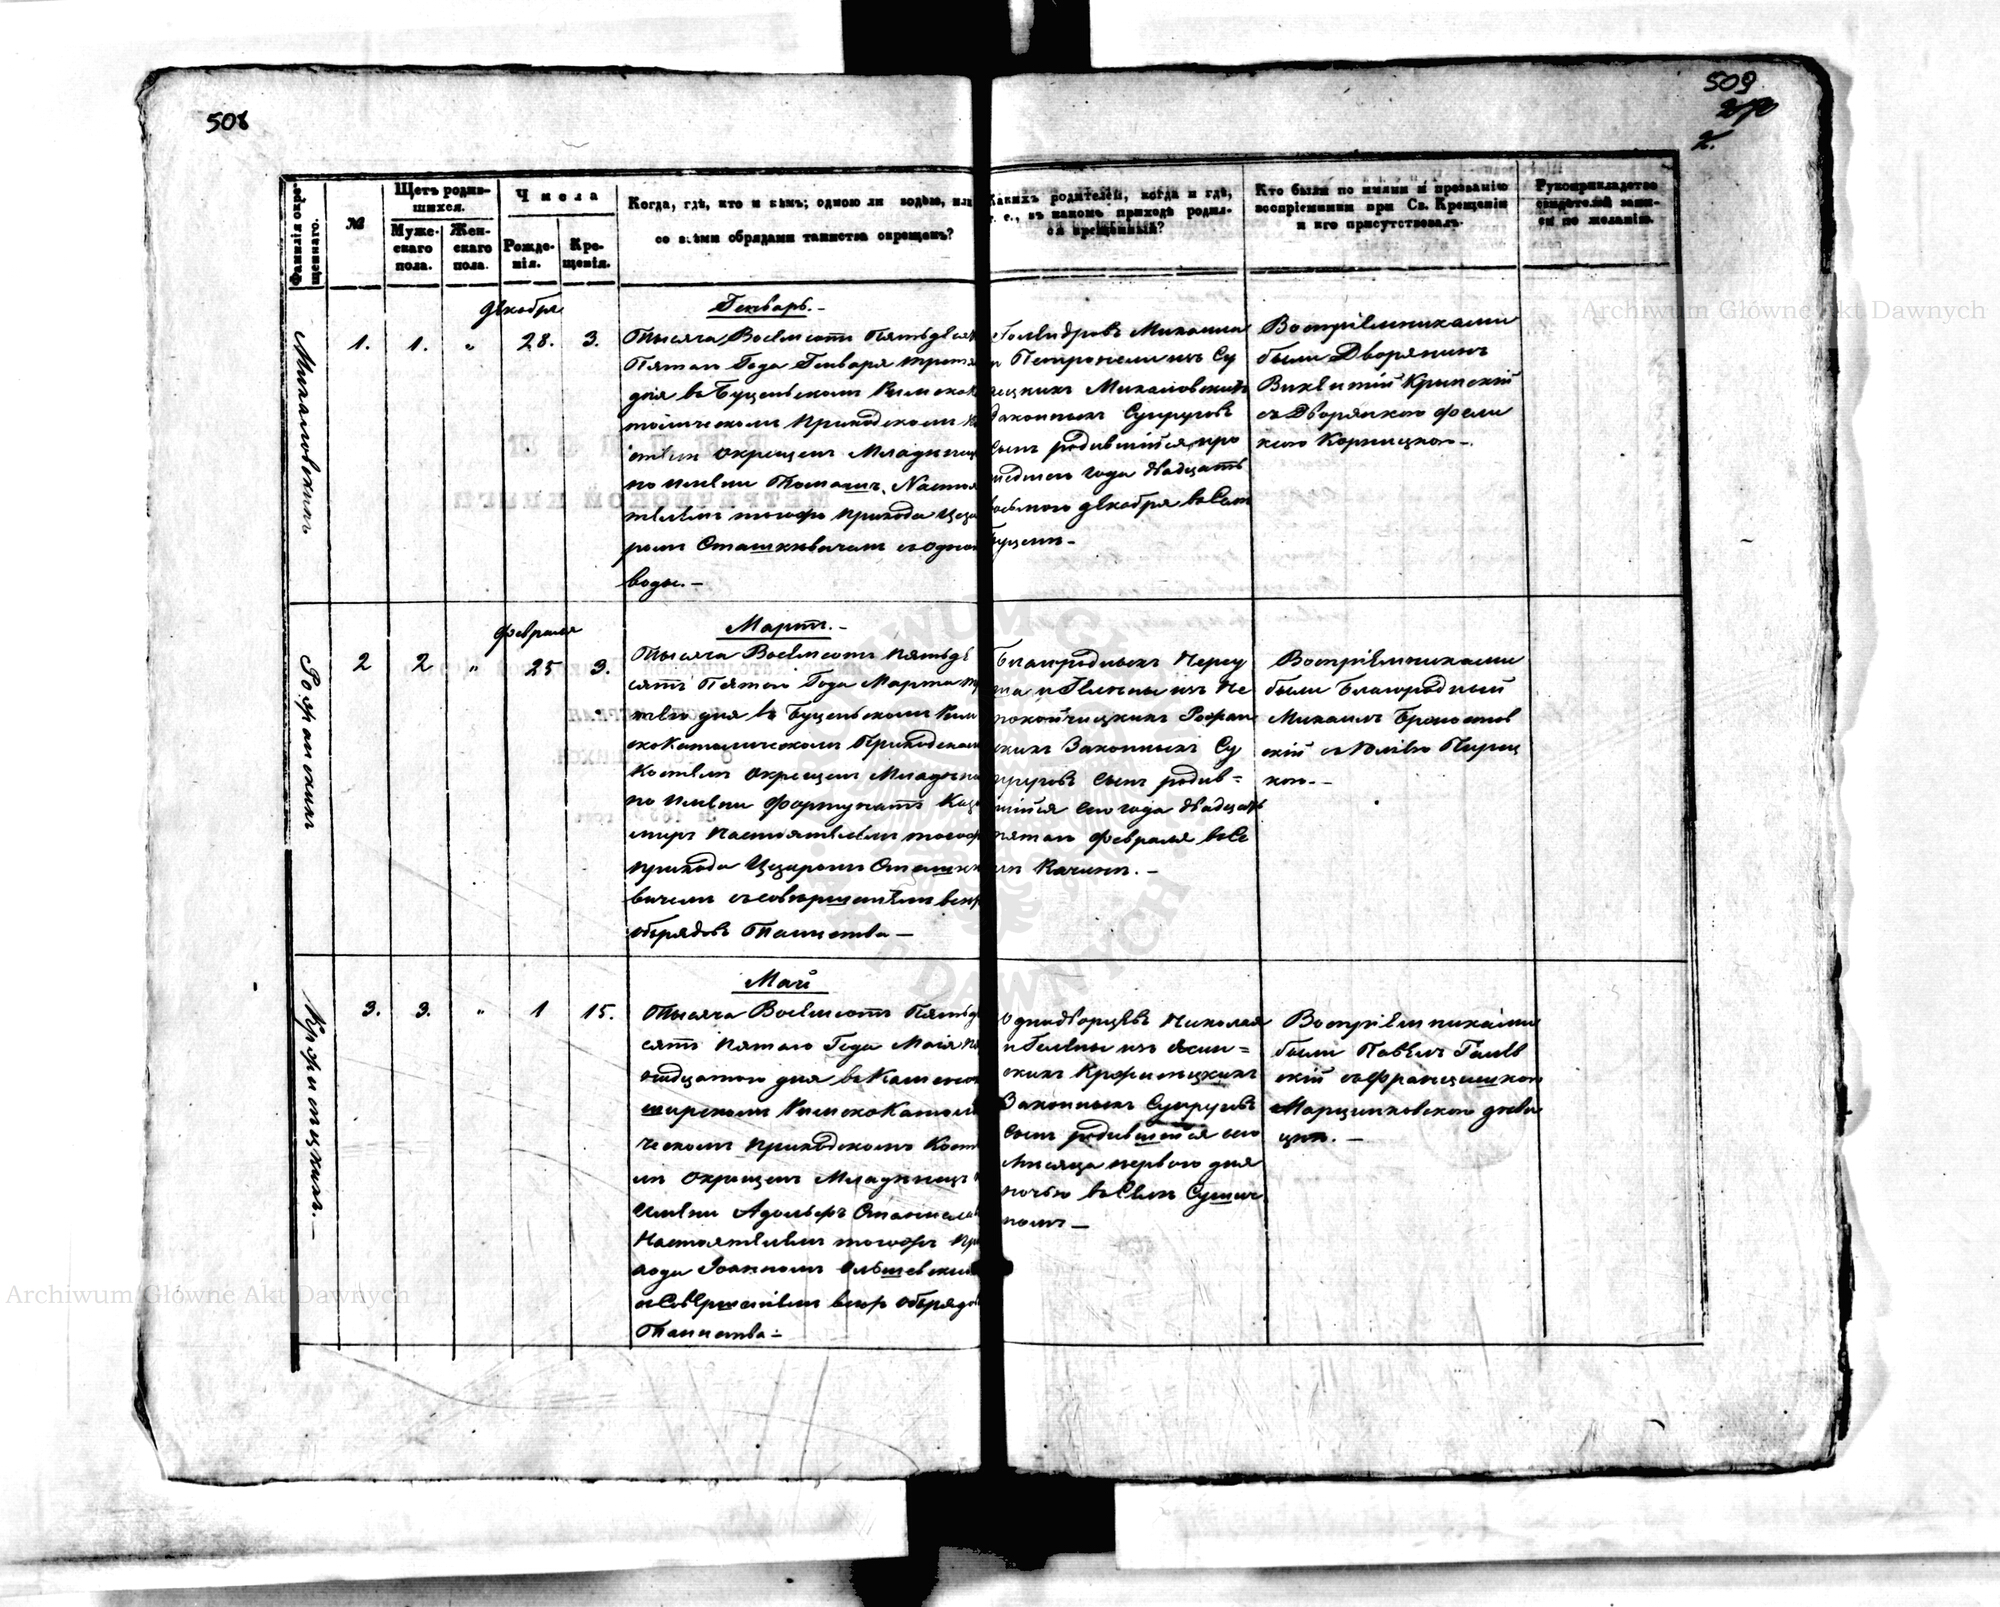 508
509
2.
Фамилія окре-
щеннаго.
№
Щетъ родив-
шихся.
Муже-
скаго
пола.
Жен-
скаго
пола.
Числа
Рожде-
нія.
Кре-
щенія.
Когда, гдѣ, кто и кѣмъ; одною ли водою, или
со всѣми обрядами таинства окрещенъ?
Какихъ родителей, когда и гдѣ,
т. е., въ какомъ приходѣ родил-
ся крещенный?
Кто были по имени и прозванію
воспріемники при Св. Крещеніи
и кто присутствовалъ.
Рукоприкладство
свидѣтелей запи-
си по желанію.
Михаловскихъ
1.
1.
"
Декабря
28.
3.
Генварь.-
Тысяча Восемсотъ Пятьдеся
Пятаго Года Генваря трет
дня въ Буценьскомъ Римско К
толическомъ приходскомъ К
окрещенъ Младенец
по имени Томашъ, Насто
телемъ тогожъ прихода Цеза
ромъ Сташкевичемъ съ одной
воды.-
Михаила
и Петронели изъ Су
Михаловскихъ
Законныхъ Супруговъ
сынъ родившійся про
шедшаго года двадцать
восьмого декабря въ Сел
Буценъ-
Воспріемниками
были Дворянинъ
Викентій Крипскій
съ Дворянкою Фели
кою Корницкою-.
Рофанскихъ
2
2
"
Февраля
25
3.
Мартъ.-
Тысяча Восемсотъ пятьде
сятъ Пятого Года Марта тр
тего дня въ Буценьскомъ Рим
ско Католическомъ Приходском
Костелѣ окрещенъ Младене
по имени Фортунатъ Кази
миръ настоятелемъ тогож
прихода Цезаромъ Сташке
вичемъ съ совершеніемъ всѣх
обрядовъ Таинства-
Благородныхъ
та и Гелены изъ Не
покойчицкихъ Рофан
скихъ Законныхъ Су
пруговъ сынъ родив=
шійся сего года двадцать
пятаго февраля въ Се
лѣ Качинъ.-
Воспріемниками
были Благородный
Михаилъ
скій съ
кою.-
3.
3.
"
1
15.
Май
Тысяча Восемсотъ Пятьде
сятъ пятаго Года Маія пя
тнадцатого дня въ Каменно
ширскомъ Римско Католи
ческомъ приходскомъ Косте
лѣ окрещенъ Младенецъ
имени Адольфъ Станисла
Настоятелемъ тогожъ пр
хода Іоанномъ Ольшевским
съ Совершеніемъ всѣх обрядо
Таинства-
Однодворцевъ Николая
и Гелены изъ Ясин=
скихъ
Законныхъ Супруговъ
сынъ родившійся сего
Мисяца первого дня
ночью въ Селѣ
Воспріемниками
были Павелъ
скій съ Францишкою
Марцинковскою деви
цею.-